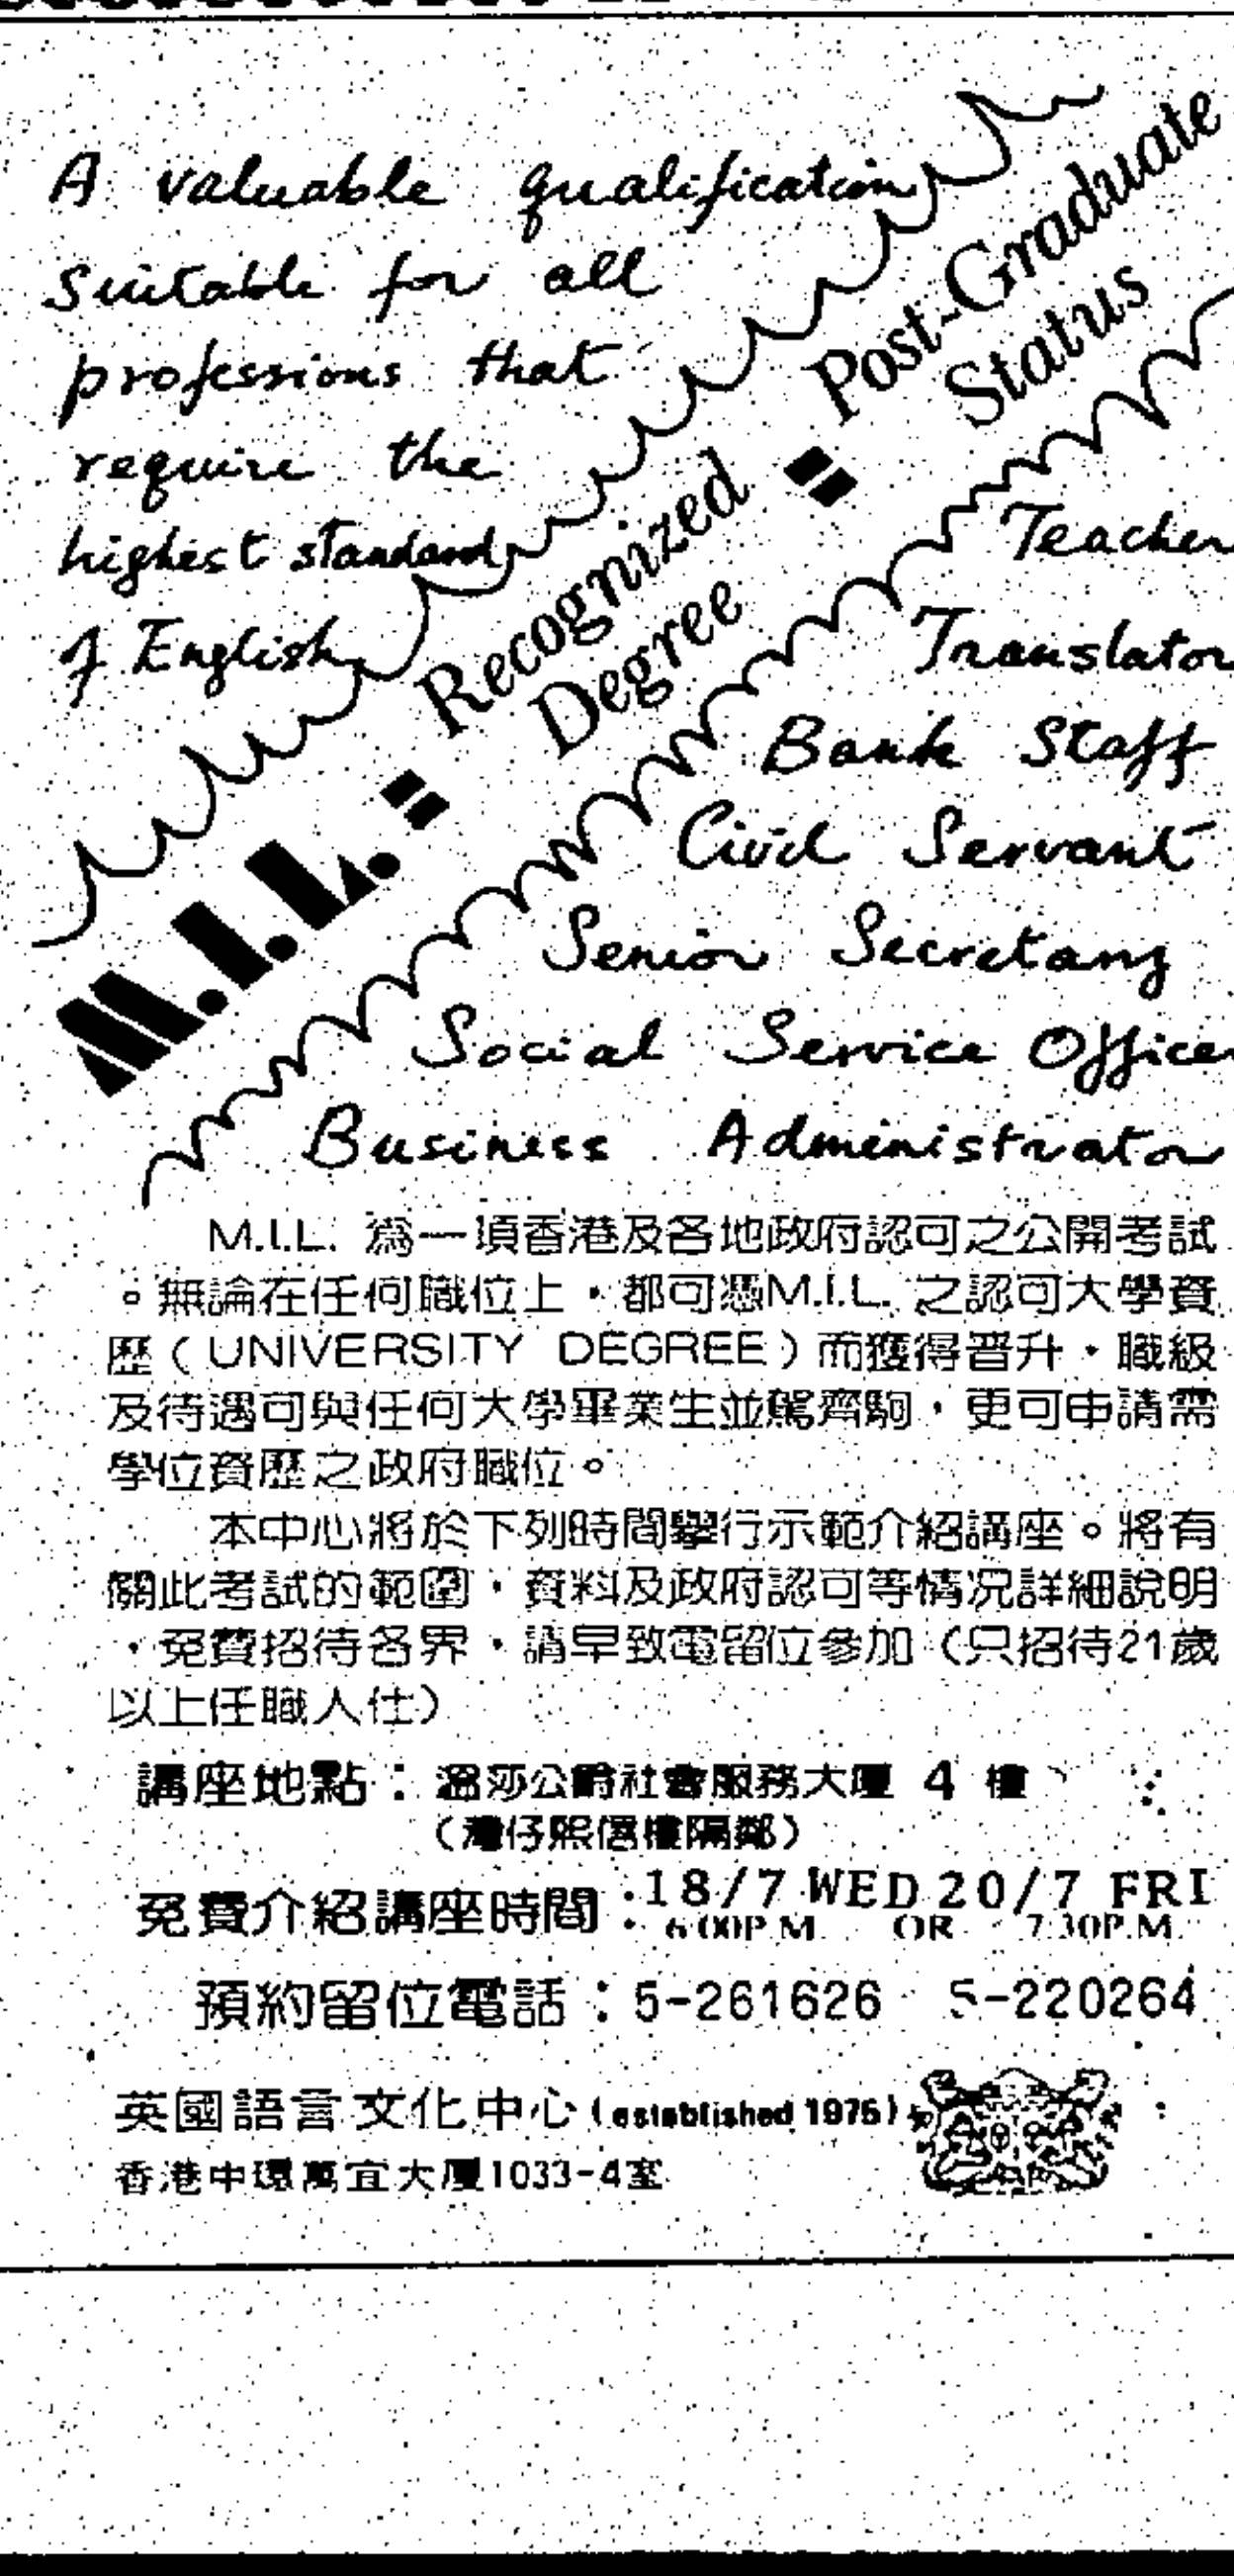 A valuable qualification
suitable for all
professions that
require the
highest standard
of English
M.I.L. = Recognized Degree = Post-Graduate Status
Teacher
Translator
Bank Staff
Civil Servant
Senior Secretary
Social Service Officer
Business Administrator
M.I.L. 爲一項香港及各地政府認可之公開考試
。無論在任何職位上，都可憑M.I.L. 之認可大學資
歷（UNIVERSITY DEGREE）而獲得晋升，職級
及待遇可與任何大學畢業生並駕齊駒，更可申請需
學位資歷之政府職位。
本中心將於下列時間舉行示範介紹講座。將有
關此考試的範圍，資料及政府認可等情况詳細說明
，免費招待各界，請早致電留位參加（只招待21歲
以上任職人仕）
講座地點：溫莎公爵社會服務大厦 4 樓
（灣仔熙信樓隔鄰）
免費介紹講座時間：18/7 WED 20/7 FRI
6.00P.M. OR 7.30P.M.
預約留位電話：5-261626 5-220264
英國語言文化中心 (established 1975)
香港中環萬宜大厦1033-4室